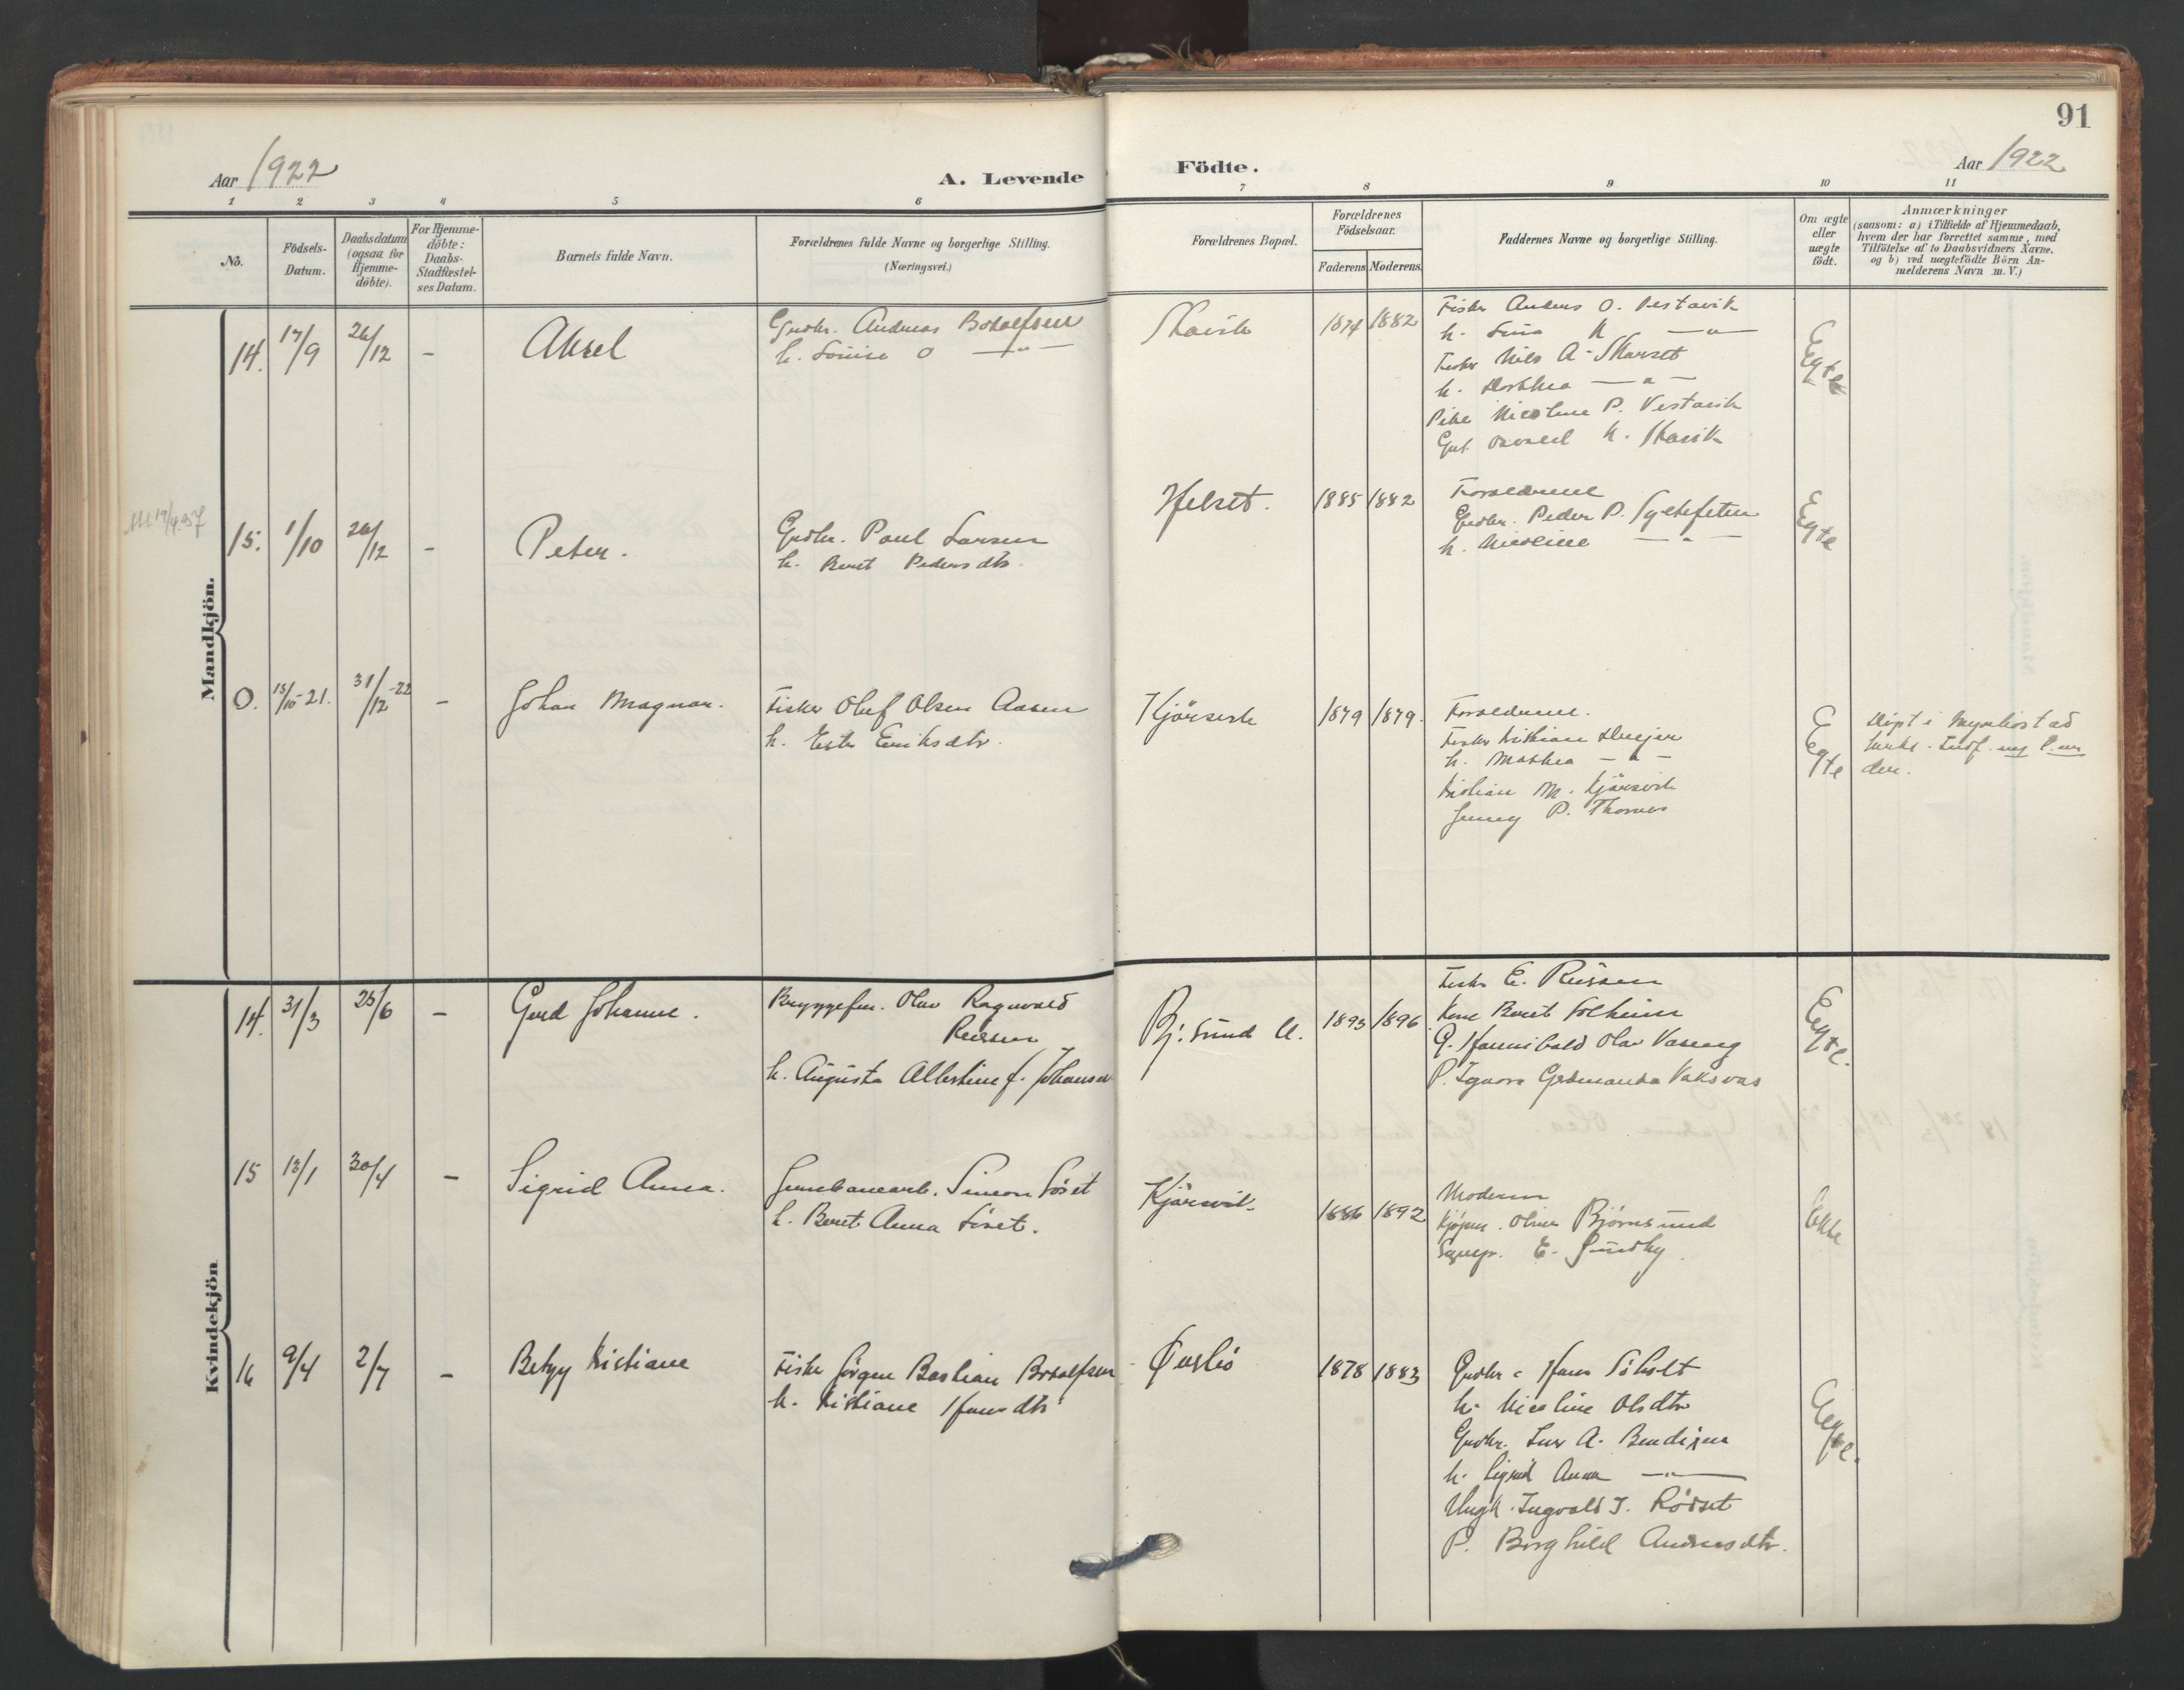 91
Aar 1922
A. Levende Födte.
Aar 1922
1 2 3 4 5 6 7 8 9 10 11
No.
Födsels-Datum.
Daabsdatum (ogsaa for Hjemme-döbte).
For Hjemme-döbte: Daabs-Stadfæstel-ses Datum.
Barnets fulde Navn.
Forældrenes fulde Navne og borgerlige Stilling.
(Næringsvei.)
Forældrenes Bopæl.
Forældrenes Födselsaar.
Faderens Moderens.
Faddernes Navne og borgerlige Stilling.
Om ægte eller uægte födt.
Anmærkninger
(saasom: a) i Tilfælde af Hjemmedaab,
hvem der har forrettet samme, med
Tilföielse af to Daabsvidners Navne,
og b) ved uægtefödte Börn An-
melderens Navn m. V.)
Mandkjön.
14. 17/9 26/12 - Aksel
Grdbr. Andreas Bokolfsen
h. Louise O —"—
Skavik
1874 1882
Fisker Anders O. Vestavik
h. Lina K —"—
Fisker Nils A. Skarset
h. Dorthea —"—
Pike Nicoline P. Vestavik
Gut K. Skavik
Egte
15. 1/10 26/12 - Peter.
Grdbr. Paul Larsen
h. Beret Pedersdtr.
Hjelset.
1885 1882
Forældrene
Grdbr. Peder P.
h. Nicoline —"—
Egte
O. 15/10-21. 31/12-22 - Johan Magnar.
Fisker Oluf Olsen Aasen
h. Ester Eriksdtr.
Kjörsvik
1879 1879.
Forældrene.
Fisker Kristian
h. Mathea —"—
Kristian M. Kjörsvik
Jenny P. Thornes
E
Egte
Döpt i
kirke. Indf.
der.
Kvindekjön
14. 31/3 25/6 - Gerd Johanne.
Bryggefm. Olav Ragnvald
Reiersen
h. Augusta Albertine f. Johansen
Bj:sund U.
1893 1896
Fisker E. Reiersen
Kone Beret Solheim
G. Hannibald Olav
P. Ignora
Egte.
15 13/1 30/4 - Sigrid Anna.
Jernbanearb. Simon Söset
h. Beret Anna Söset.
Kjörsvik.
1886 1892
Moderen
Kjöpm. Oliver Björnsund
E. Sundby.
Ekte
16 9/4 2/7 - Betzy Kristiane
Fisker Jörgen Bastian Brodlfsen
h. Kristiane Hansdtr
1878 1883
Grdbr. Hans Söholt
h. Nicoline Olsdtr
Grdbr. Lars A. Bendixen
h. Sigrid Anna —"—
Ungk. Ingvald J. Rödset
P. Borghild Andreasdtr.
Egte.